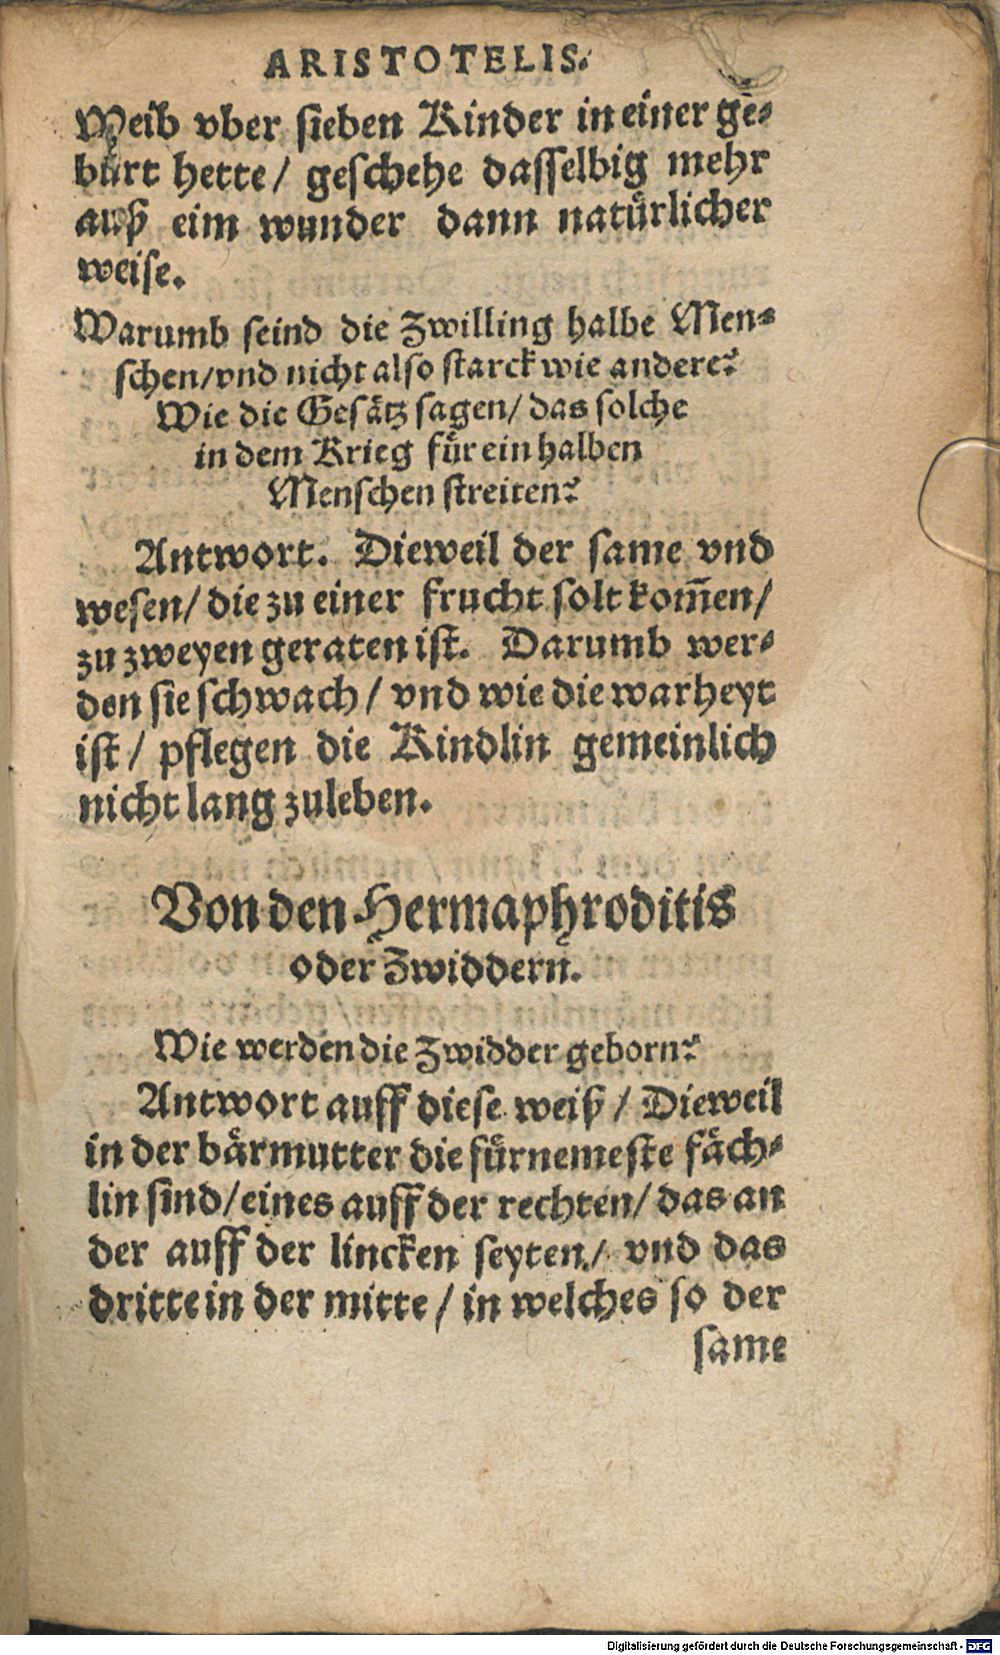 ARISTOTELIS.
Weib vber sieben Kinder in einer ge⸗
burt hette/ geschehe dasselbig mehr
auß eim wunder dann natuͤrlicher
weise.
Warumb seind die Zwilling halbe Men⸗
schen/vnd nicht also starck wie andere?
Wie die Gesaͤtz sagen/ das solche
in dem Krieg fuͤr ein halben
Menschen streiten?
Antwort. Dieweil der same vnd
wesen/ die zu einer frucht solt kom̄en/
zu zweyen geraten ist. Darumb wer⸗
den sie schwach/ vnd wie die warheyt
ist/ pflegen die Kindlin gemeinlich
nicht lang zuleben.
Von den Hermaphroditis
oder Zwiddern.
Wie werden die Zwidder geborn?
Antwort auff diese weiß/ Dieweil
in der baͤrmutter die fuͤrnemeste faͤch⸗
lin sind/eines auff der rechten/ das an
der auff der lincken seyten/ vnd das
dritte in der mitte/ in welches so der
same
Digitalisierung gefördert durch die Deutsche Forschungsgemeinschaft - DFG